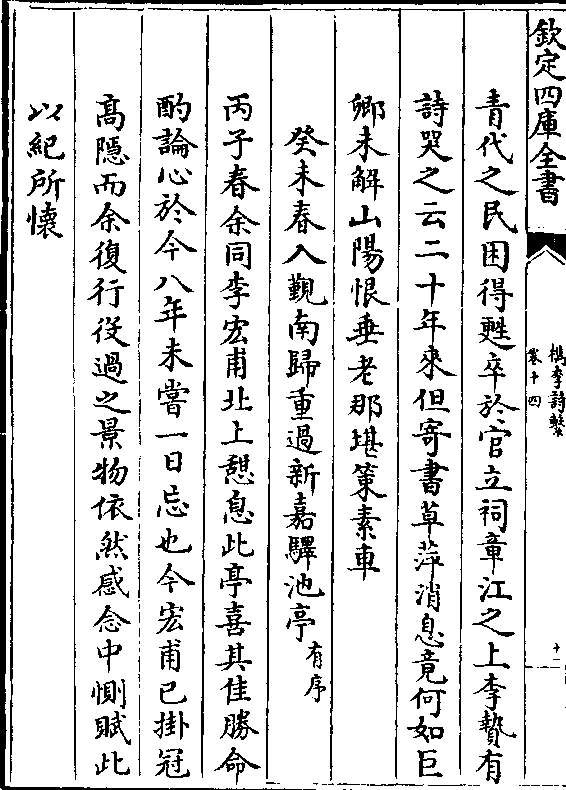 欽定四庫全書
檇李詩繫
卷十四
十二
青代之民困得甦卒於官立祠章江之上李贄有
詩哭之云二十年來但寄書草萍消息竟何如巨
卿未解山陽恨垂老那堪策素車
癸未春入覲南歸重過新嘉驛池亭有序
丙子春余同李宏甫北上憩息此亭喜其佳勝命
酌論心於今八年未嘗一日忘也今宏甫已掛冠
高隠而余復行役過之景物依然感念中惻賦此
以紀所懷